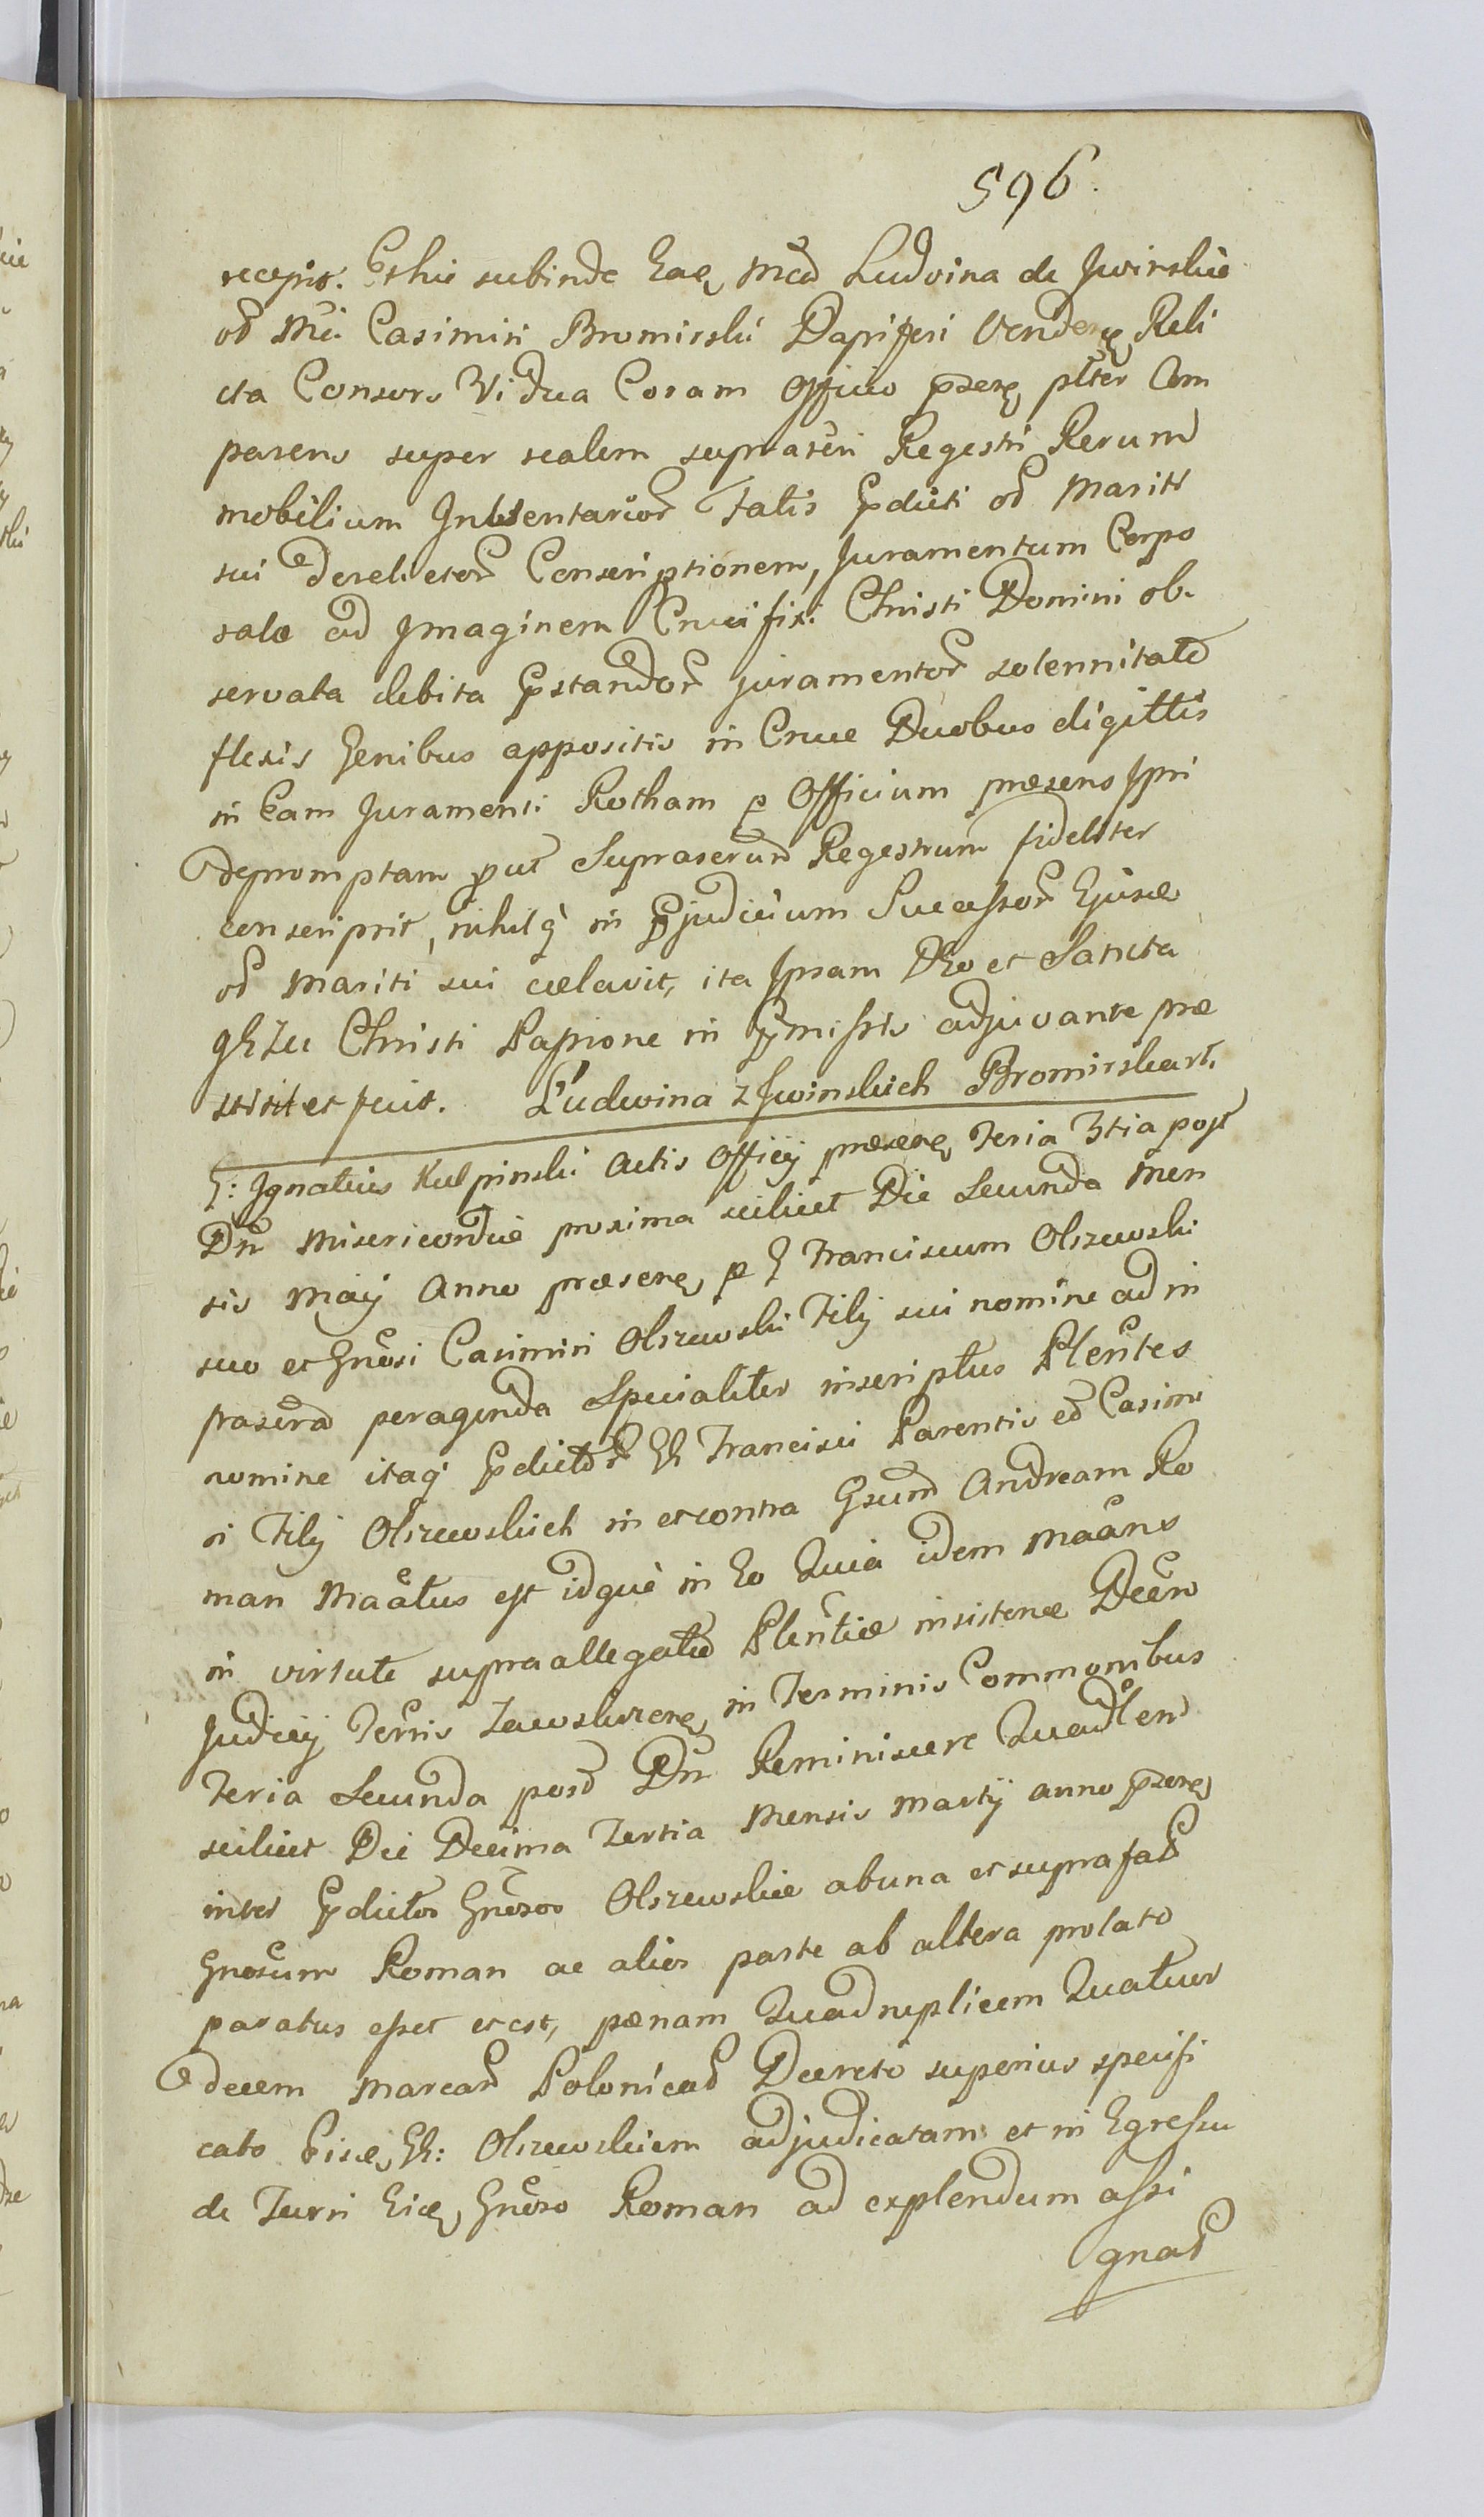 596.
recepit. Et hic subinde Eaq Mcd Ludvina de Jwinskie
od Mci. Casimiri Bromirski Dapiferi Venderę Reli
cta Consors Vidua Coram Officio pzerę plter Com
parens super realem suprascri Regestri Rerum
mobilium Inventarior Talis Pdicti od Mariti
sui derelictor Conscriptionem, Juramentum Corpo
rale ad Jmaginem Crucifixi Christi Domini ob.
servata debita Pstandor juramentor solennitate
flexis Genibus appositis in Cruce Duobus digittis
in Eam Juramenti Rotham p Officium præsens Jpri
depromptam put Suprascrum Regestrum fideliter
conscripsit, nihilq in Pjudicium Successor Ejusce
od Mariti sui celavit, ita Jpsam Deo et Sancta
Christi Passione in Pmissis adjuvante præ
stitit et fecit. Ludwina z Jwinskich Bromirskart.
G: Jgnatius Kulpinski Actis Officij præsenę Feria 3tia post
Dn Misericordiæ proxima scilicet Die Secunda Men
sis Maij Anno præsenę p G Franciscum Olszewski
suo et Gnosi Casimiri Olszewski Filij sui nomine ad in
frascrd peragenda Specialiter inscriptus Plentes
nomine itaq Pdictor GG Francisci Parentis ed Casimi
ri Filij Olszewskich in et contra Gsum Andream Ro
man Maatus est idque in Eo Quia idem Maans
in virtute supraallegatæ Plentiæ insistenæ Decro
Judicij Terris Zawskrzenę in Terminis Commonibus
Feria Secunda post Dn Reminiscere Quadlend
scilicet Die Decima Tertia Mensis Martij anno pzerę
inter Pdictos Gnosos Olszewskie abuna et suprafad
Gnosum Roman ac alios parte ab altera prolato
paratus esset et est, pænam Quadruplicem Quatuor
decem Marcar Polonicad Decreto superius specifi
cato Eisce GG: Olszewskiem adjudicatam et in Egressu
de Turri Eice Gnoso Roman ad explendum assi
gnad